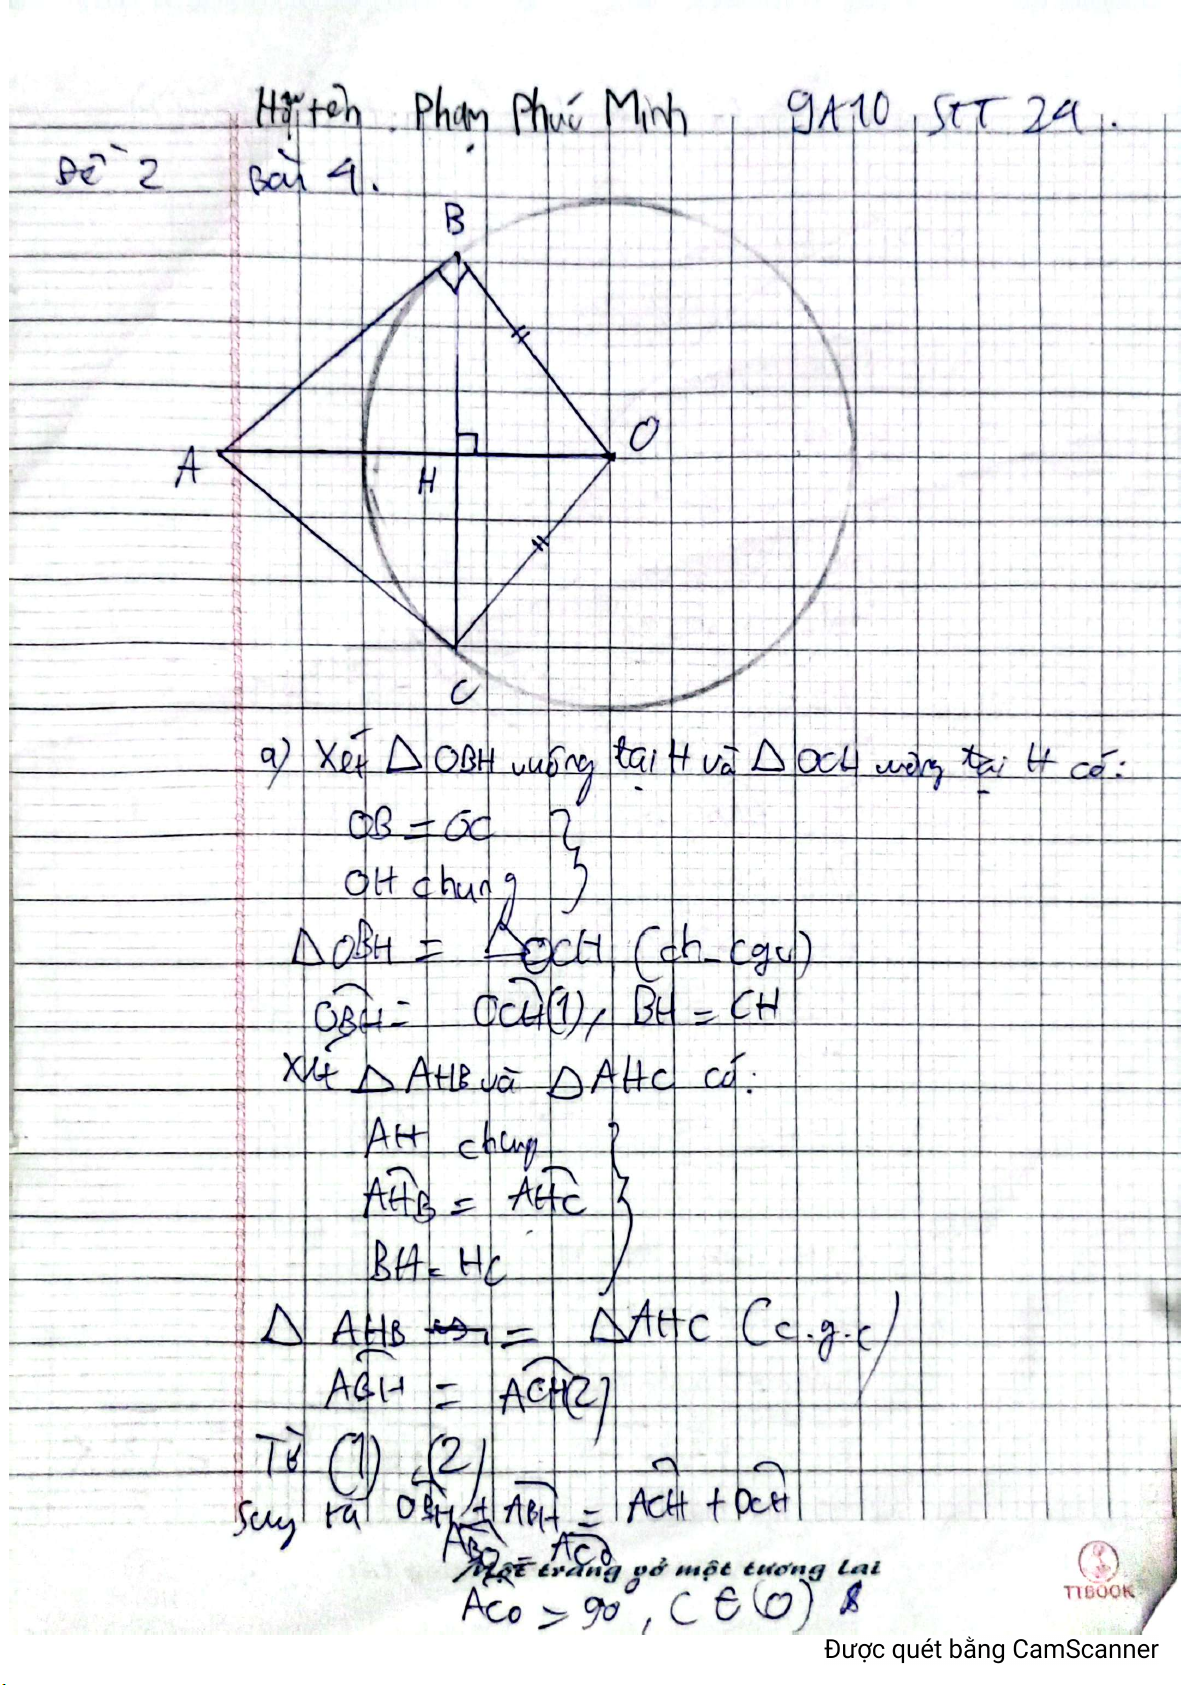 Họ tên. Phạm Phúc Minh 9A10 STT 24.
Đề 2 Bài 4.
B
A
H
O
C
a) Xét △ OBH vuông tại H và △ OCH vuông tại H có:
OB = OC
OH chung
△OBH = △OCH (ch_cgv)
OBH = OCH (1), BH = CH
Xét △ AHB và △ AHC có:
AH chung
AHB = AHC
BH = HC
△ AHB = △AHC (c.g.c)
ABH = ACH (2)
Từ (1), (2)
Suy ra OBH + ABH = ACH + OCH
ABO = ACO
Một trang vở một tương lai
TTBOOK
ACO = 90°, C ∈ (O)
Được quét bằng CamScanner